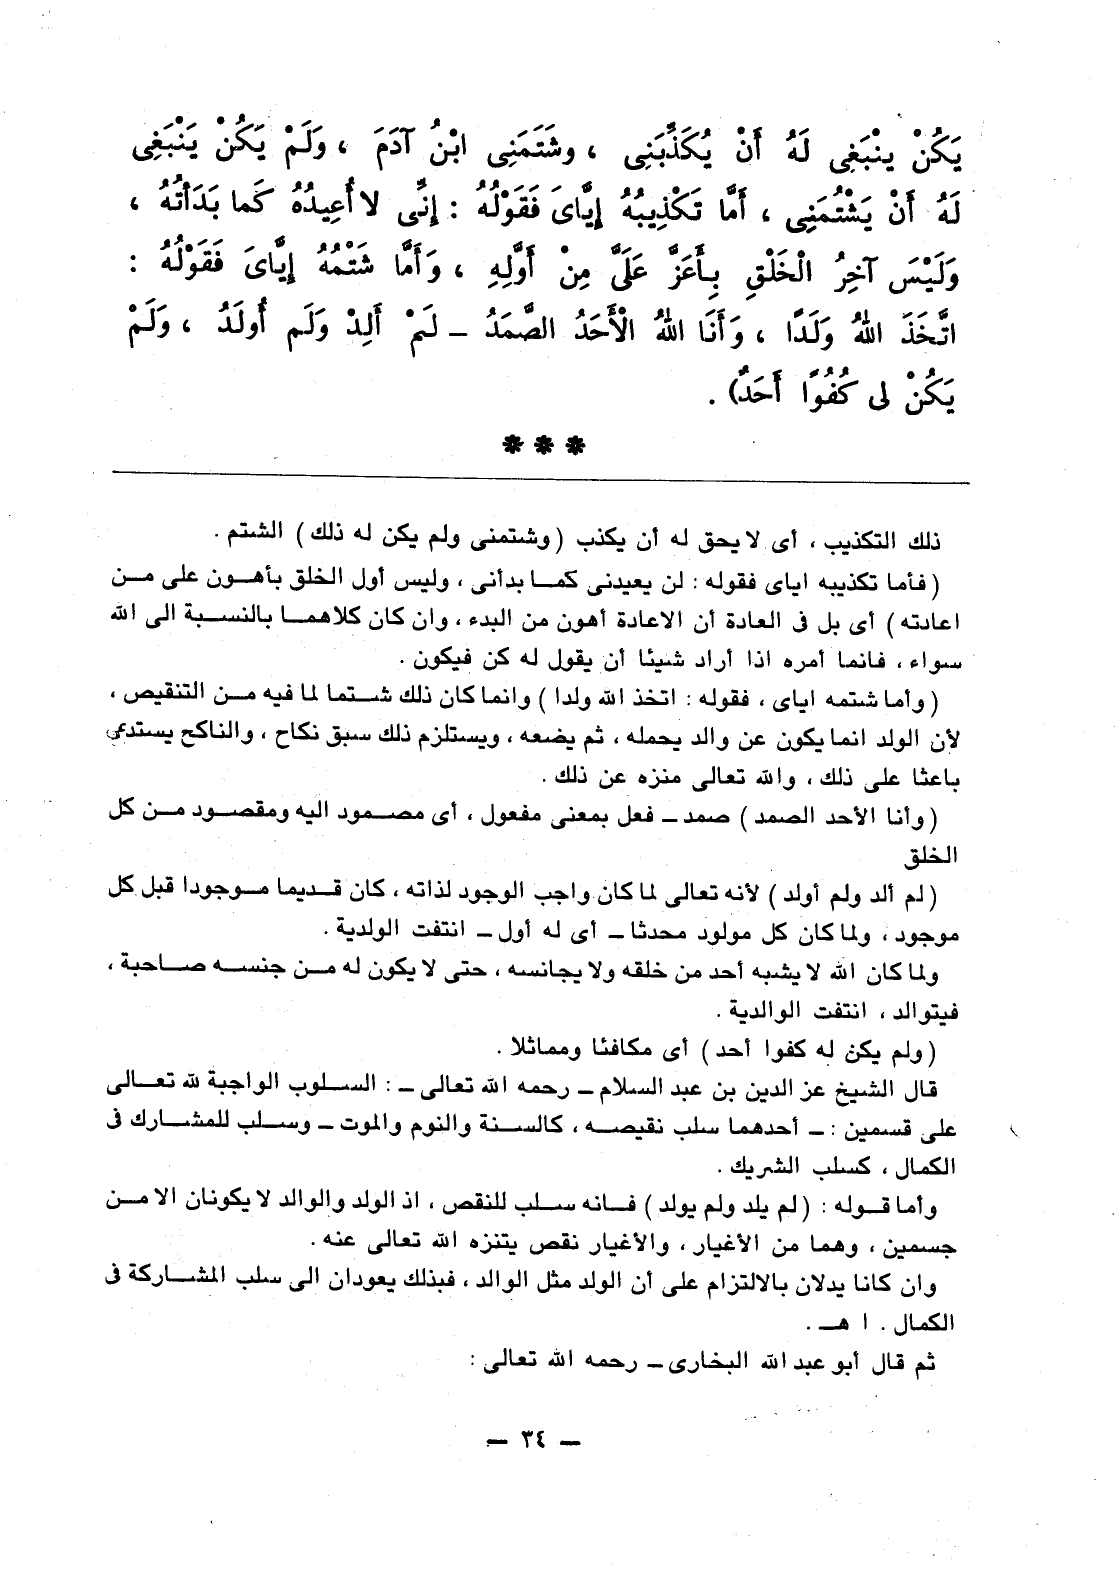 يَكُنْ ينْبَغِى لَهُ أَنْ يُكَذِّبَنِى ، وشَتَمَنِى ابْنُ آدَمَ ، وَلَمْ يَكُنْ يَنْبَغِى
لَهُ أَنْ يَشْتُمَنِى ، أَمَّا تَكْذِيبُهُ إيَّاىَ فَقَوْلُهُ : إنِّى لا أُعِيدُهُ كَما بَدَأتُهُ ،
وَلَيْسَ آخِرُ الْخَلْقِ بِأَعَزَّ عَلَىَّ مِنْ أَوَّلِهِ ، وَأَمَّا شَتْمُهُ إيَّاىَ فَقَوْلُهُ :
اتَّخَذَ اللهُ وَلَدًا ، وَأَنَا اللهُ الْأَحَدُ الصَّمَدُ ــ لَمْ أَلِدْ وَلَم أُولَدُ ، وَلَمْ
يَكُنْ لى كُفُوًا أَحَدٌ) .
* * *
ذلك التكذيب ، أى لا يحق له أن يكذب (وشتمنى ولم يكن له ذلك) الشتم .
(فأما تكذيبه اياى فقوله : لن يعيدنى كما بدأنى ، وليس أول الخلق بأهون على من
اعادته) أى بل فى العادة أن الاعادة أهون من البدء ، وان كان كلاهما بالنسبة الى الله
سواء ، فانما أمره اذا أراد شيئا أن يقول له كن فيكون .
(وأما شتمه اياى ، فقوله : اتخذ الله ولدا) وانما كان ذلك شتما لما فيه من التنقيص ،
لأن الولد انما يكون عن والد يحمله ، ثم يضعه ، ويستلزم ذلك سبق نكاح ، والناكح يستدعى
باعثا على ذلك ، والله تعالى منزه عن ذلك .
(وأنا الأحد الصمد) صمد ــ فعل بمعنى مفعول ، أى مصمود اليه ومقصود من كل
الخلق
(لم ألد ولم أولد) لأنه تعالى لما كان واجب الوجود لذاته ، كان قديما موجودا قبل كل
موجود ، ولما كان كل مولود محدثا ــ أى له أول ــ انتفت الولدية .
ولما كان الله لا يشبه أحد من خلقه ولا يجانسه ، حتى لا يكون له من جنسه صاحبة ،
فيتوالد ، انتفت الوالدية .
(ولم يكن له كفوا أحد) أى مكافئا ومماثلا .
قال الشيخ عز الدين بن عبد السلام ــ رحمه الله تعالى ــ : السلوب الواجبة لله تعالى
على قسمين : ــ أحدهما سلب نقيصه ، كالسنة والنوم والموت ــ وسلب للمشارك فى
الكمال ، كسلب الشريك .
وأما قوله : (لم يلد ولم يولد) فانه سلب للنقص ، اذ الولد والوالد لا يكونان الا من
جسمين ، وهما من الأغيار ، والأغيار نقص يتنزه الله تعالى عنه .
وان كانا يدلان بالالتزام على أن الولد مثل الوالد ، فبذلك يعودان الى سلب المشاركة فى
الكمال . ا هـ .
ثم قال أبو عبد الله البخارى ــ رحمه الله تعالى :
ــ ٣٤ ــ